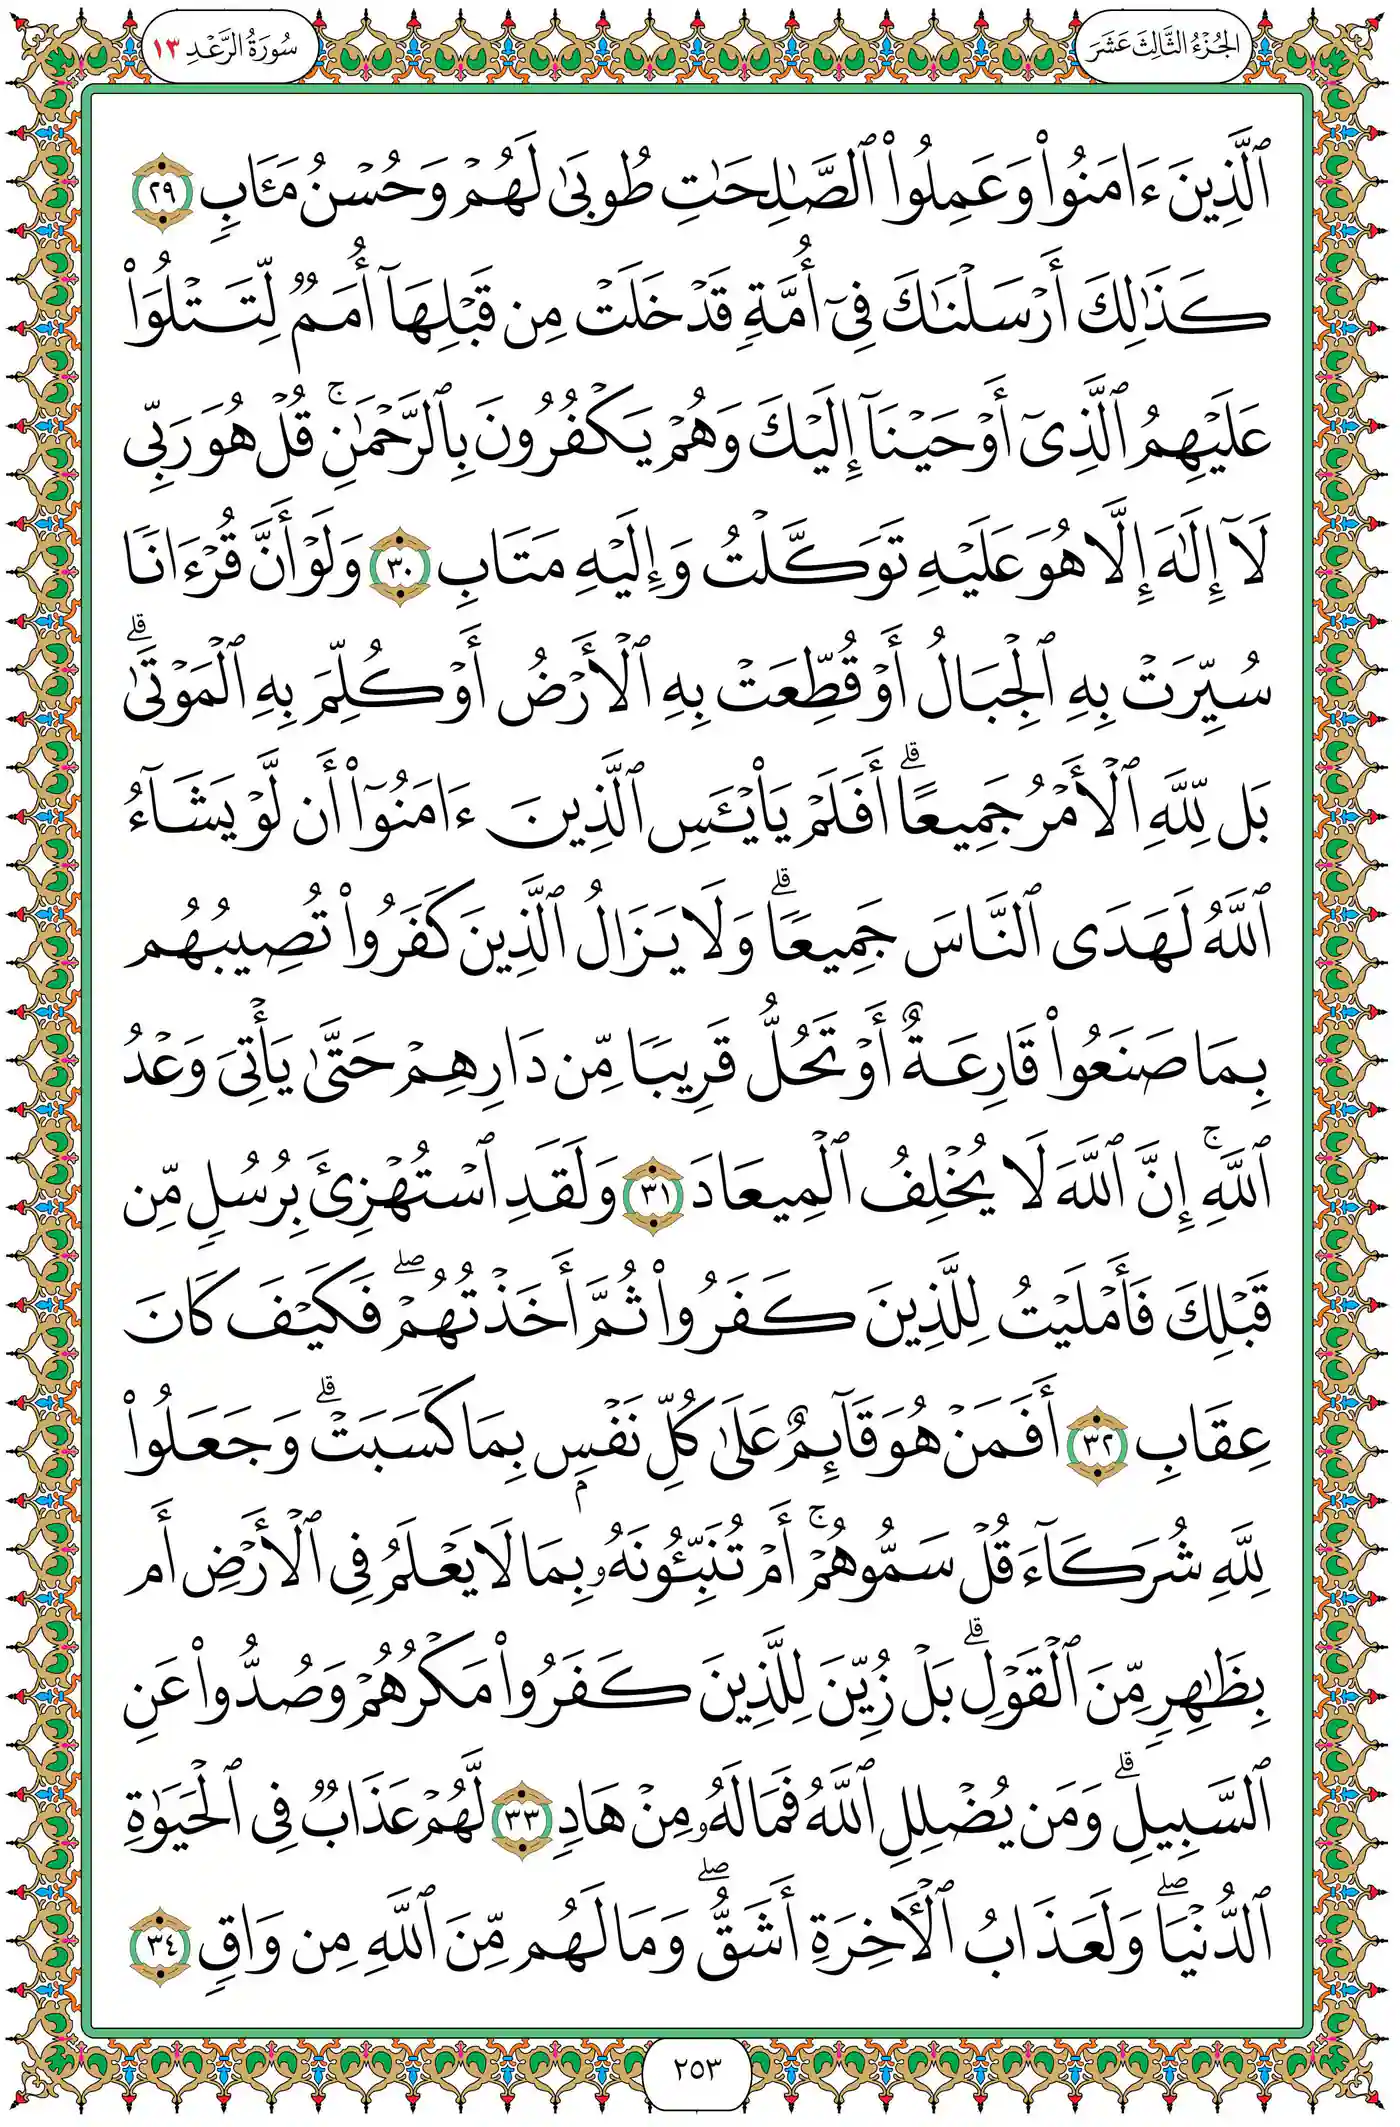 الجُزْءُ الثَّالِثَ عَشَرَ
سُورَةُ الرَّعْدِ ١٣
ٱلَّذِينَ ءَامَنُوا۟ وَعَمِلُوا۟ ٱلصَّـٰلِحَـٰتِ طُوبَىٰ لَهُمْ وَحُسْنُ مَـَٔابٍ ٢٩
كَذَٰلِكَ أَرْسَلْنَـٰكَ فِىٓ أُمَّةٍ قَدْ خَلَتْ مِن قَبْلِهَآ أُمَمٌ لِّتَتْلُوَا۟
عَلَيْهِمُ ٱلَّذِىٓ أَوْحَيْنَآ إِلَيْكَ وَهُمْ يَكْفُرُونَ بِٱلرَّحْمَـٰنِ ۚ قُلْ هُوَ رَبِّى
لَآ إِلَـٰهَ إِلَّا هُوَ عَلَيْهِ تَوَكَّلْتُ وَإِلَيْهِ مَتَابِ ٣٠ وَلَوْ أَنَّ قُرْءَانًا
سُيِّرَتْ بِهِ ٱلْجِبَالُ أَوْ قُطِّعَتْ بِهِ ٱلْأَرْضُ أَوْ كُلِّمَ بِهِ ٱلْمَوْتَىٰ ۗ
بَل لِّلَّهِ ٱلْأَمْرُ جَمِيعًا ۗ أَفَلَمْ يَا۟يْـَٔسِ ٱلَّذِينَ ءَامَنُوٓا۟ أَن لَّوْ يَشَآءُ
ٱللَّهُ لَهَدَى ٱلنَّاسَ جَمِيعًا ۗ وَلَا يَزَالُ ٱلَّذِينَ كَفَرُوا۟ تُصِيبُهُم
بِمَا صَنَعُوا۟ قَارِعَةٌ أَوْ تَحُلُّ قَرِيبًا مِّن دَارِهِمْ حَتَّىٰ يَأْتِىَ وَعْدُ
ٱللَّهِ ۚ إِنَّ ٱللَّهَ لَا يُخْلِفُ ٱلْمِيعَادَ ٣١ وَلَقَدِ ٱسْتُهْزِئَ بِرُسُلٍ مِّن
قَبْلِكَ فَأَمْلَيْتُ لِلَّذِينَ كَفَرُوا۟ ثُمَّ أَخَذْتُهُمْ ۖ فَكَيْفَ كَانَ
عِقَابِ ٣٢ أَفَمَنْ هُوَ قَآئِمٌ عَلَىٰ كُلِّ نَفْسٍۭ بِمَا كَسَبَتْ ۗ وَجَعَلُوا۟
لِلَّهِ شُرَكَآءَ قُلْ سَمُّوهُمْ ۚ أَمْ تُنَبِّـُٔونَهُۥ بِمَا لَا يَعْلَمُ فِى ٱلْأَرْضِ أَم
بِظَـٰهِرٍ مِّنَ ٱلْقَوْلِ ۗ بَلْ زُيِّنَ لِلَّذِينَ كَفَرُوا۟ مَكْرُهُمْ وَصُدُّوا۟ عَنِ
ٱلسَّبِيلِ ۗ وَمَن يُضْلِلِ ٱللَّهُ فَمَا لَهُۥ مِنْ هَادٍ ٣٣ لَّهُمْ عَذَابٌ فِى ٱلْحَيَوٰةِ
ٱلدُّنْيَا ۖ وَلَعَذَابُ ٱلْـَٔاخِرَةِ أَشَقُّ ۖ وَمَا لَهُم مِّنَ ٱللَّهِ مِن وَاقٍ ٣٤
٢٥٣